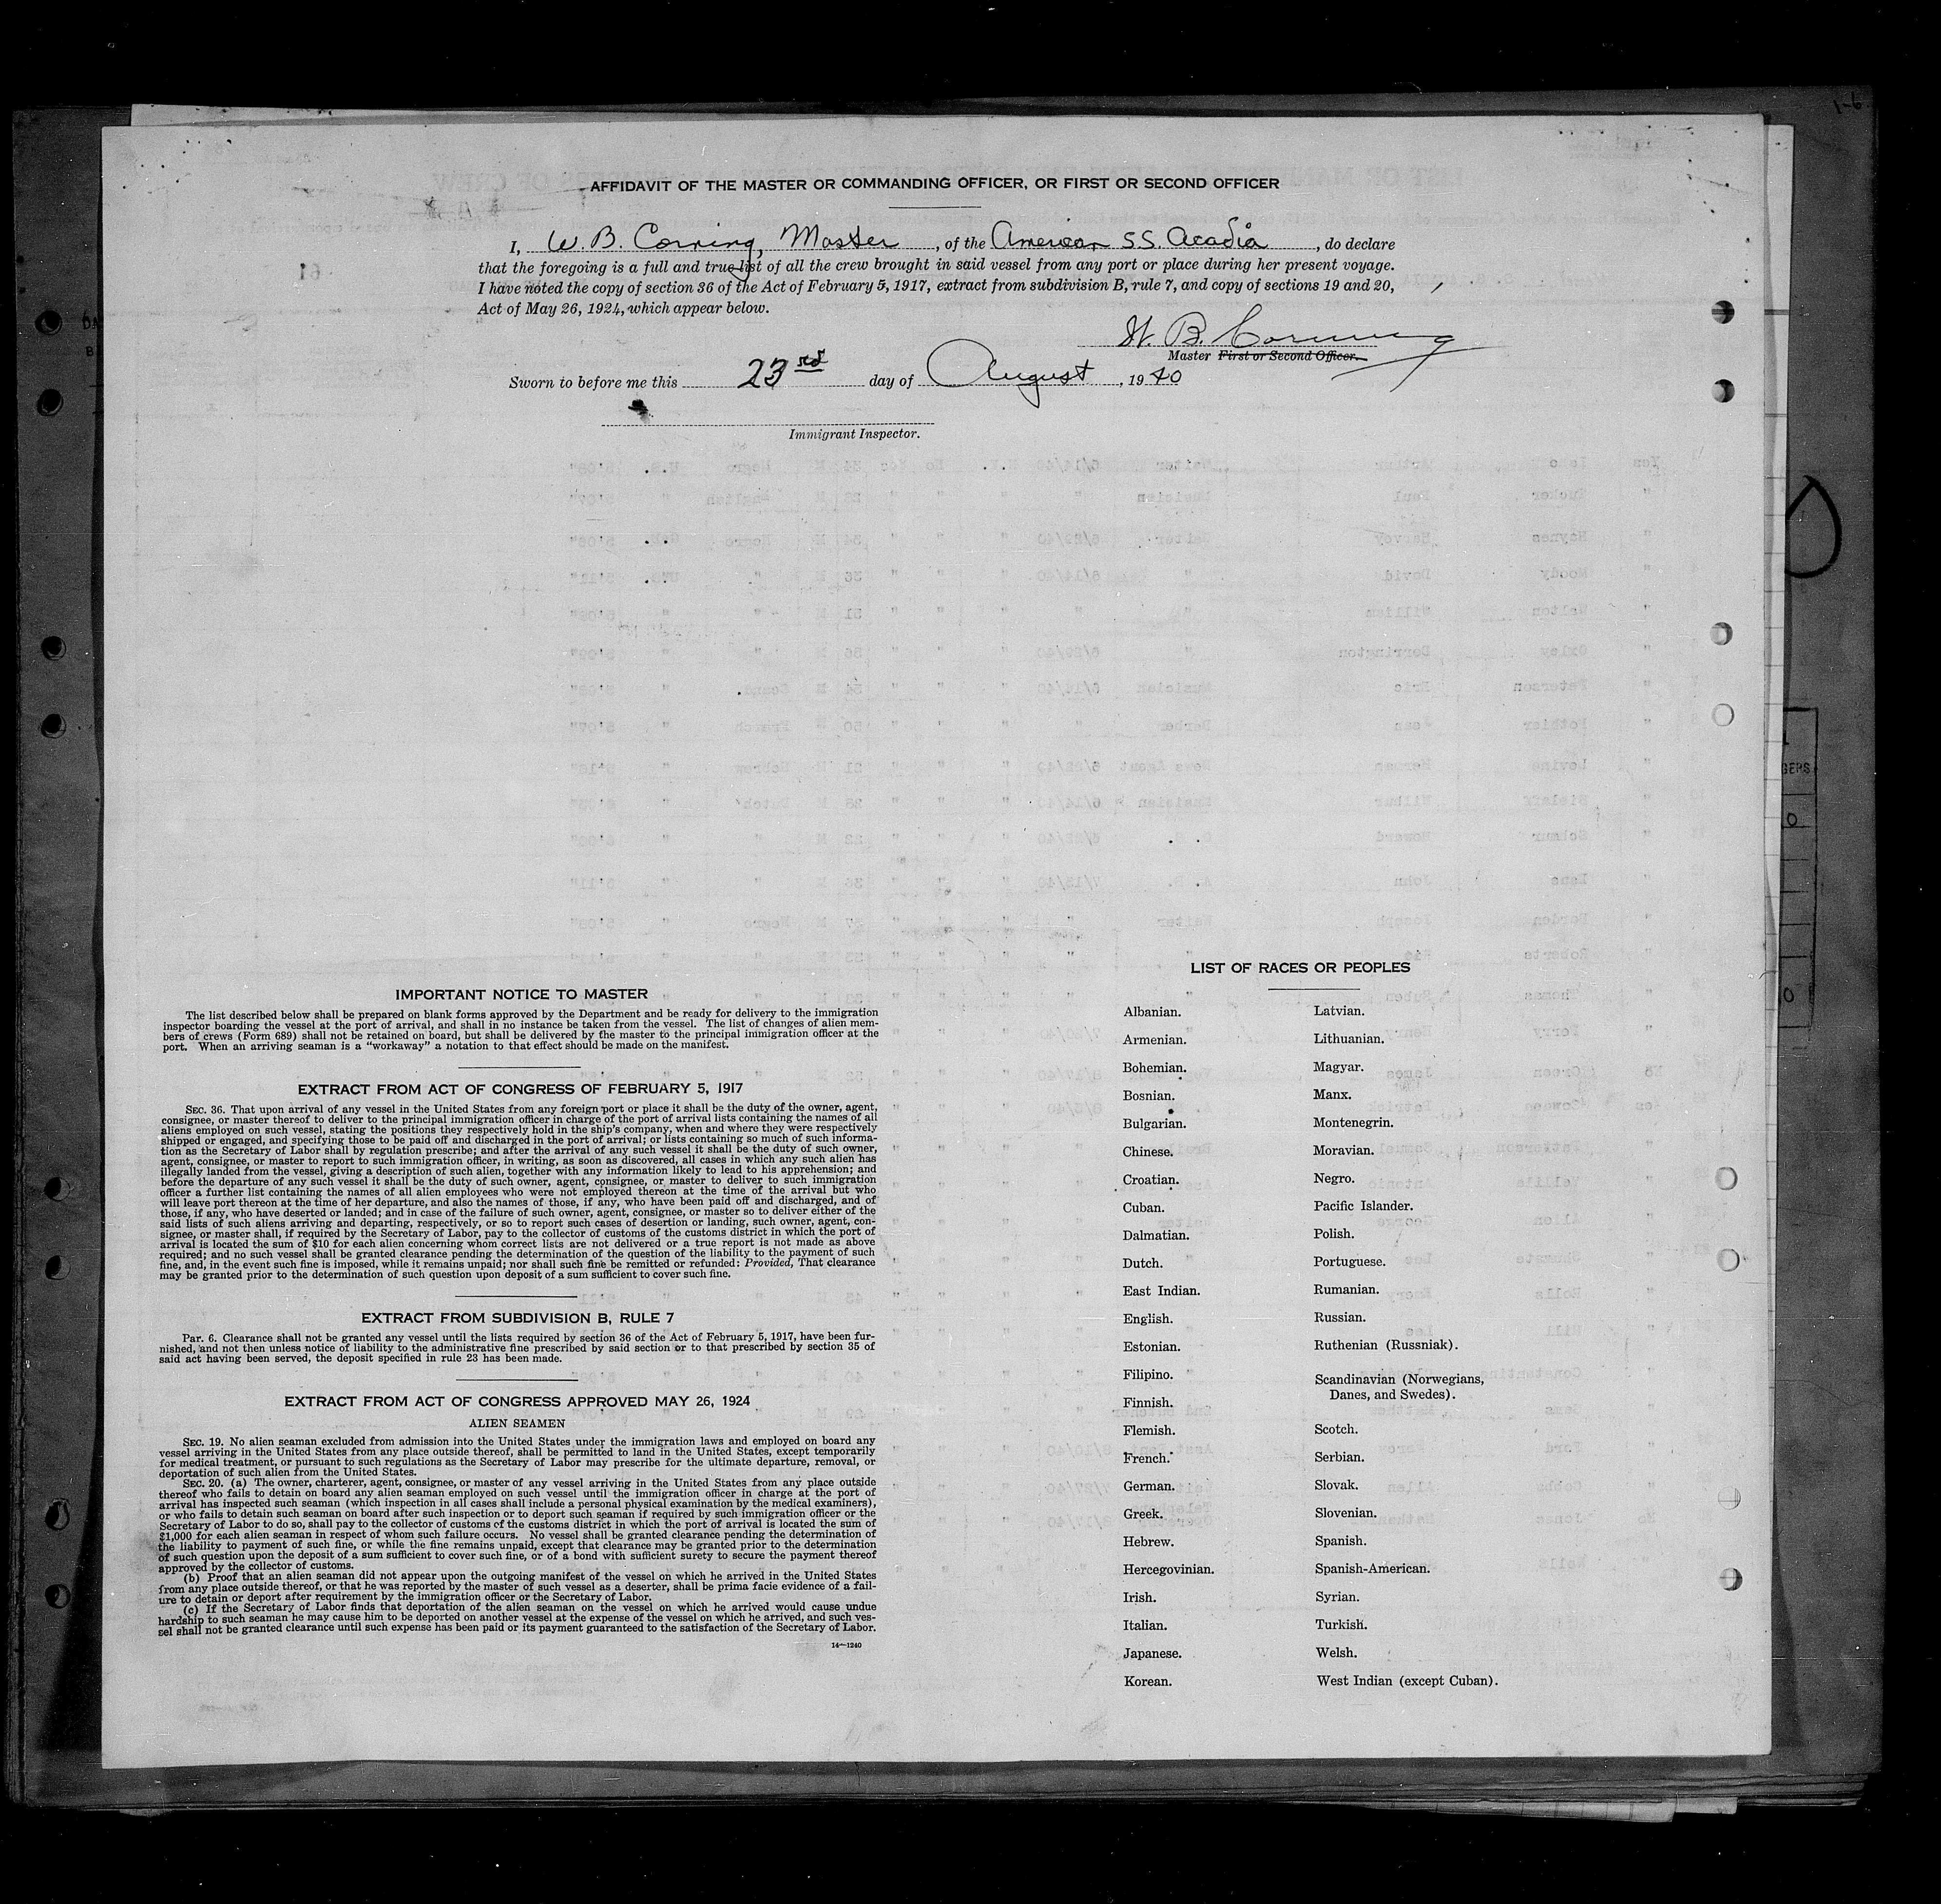 AFFIDAVIT OF THE MASTER OR COMMANDING OFFICER, OR FIRST OR SECOND OFFICER
I, W. B. Corning, Master, of the American SS. Acadia, do declare
that the foregoing is a full and true list of all the crew brought in said vessel from any port or place during her present voyage.
I have noted the copy of section 36 of the Act of February 5, 1917, extract from subdivision B, rule 7, and copy of sections 19 and 20,
Act of May 26, 1924, which appear below.
W. B. Corning
Master First or Second Officer.
Sworn to before me this 23rd day of August, 1940
Immigrant Inspector.
IMPORTANT NOTICE TO MASTER
The list described below shall be prepared on blank forms approved by the Department and be ready for delivery to the immigration
inspector boarding the vessel at the port of arrival, and shall in no instance be taken from the vessel. The list of changes of alien mem-
bers of crews (Form 689) shall not be retained on board, but shall be delivered by the master to the principal immigration officer at the
port. When an arriving seaman is a "workaway" a notation to that effect should be made on the manifest.
EXTRACT FROM ACT OF CONGRESS OF FEBRUARY 5, 1917
SEC. 36. That upon arrival of any vessel in the United States from any foreign port or place it shall be the duty of the owner, agent,
consignee, or master thereof to deliver to the principal immigration officer in charge of the port of arrival lists containing the names of all
aliens employed on such vessel, stating the positions they respectively hold in the ship's company, when and where they were respectively
shipped or engaged, and specifying those to be paid off and discharged in the port of arrival; or lists containing so much of such informa-
tion as the Secretary of Labor shall by regulation prescribe; and after the arrival of any such vessel it shall be the duty of such owner,
agent, consignee, or master to report to such immigration officer, in writing, as soon as discovered, all cases in which any such alien has
illegally landed from the vessel, giving a description of such alien, together with any information likely to lead to his apprehension; and
before the departure of any such vessel it shall be the duty of such owner, agent, consignee, or master to deliver to such immigration
officer a further list containing the names of all alien employees who were not employed thereon at the time of the arrival but who
will leave port thereon at the time of her departure, and also the names of those, if any, who have been paid off and discharged, and of
those, if any, who have deserted or landed; and in case of the failure of such owner, agent, consignee, or master so to deliver either of the
said lists of such aliens arriving and departing, respectively, or so to report such cases of desertion or landing, such owner, agent, con-
signee, or master shall, if required by the Secretary of Labor, pay to the collector of customs of the customs district in which the port of
arrival is located the sum of $10 for each alien concerning whom correct lists are not delivered or a true report is not made as above
required; and no such vessel shall be granted clearance pending the determination of the question of the liability to the payment of such
fine, and, in the event such fine is imposed, while it remains unpaid; nor shall such fine be remitted or refunded: Provided, That clearance
may be granted prior to the determination of such question upon deposit of a sum sufficient to cover such fine.
EXTRACT FROM SUBDIVISION B, RULE 7
Par. 6. Clearance shall not be granted any vessel until the lists required by section 36 of the Act of February 5, 1917, have been fur-
nished, and not then unless notice of liability to the administrative fine prescribed by said section or to that prescribed by section 35 of
said act having been served, the deposit specified in rule 23 has been made.
EXTRACT FROM ACT OF CONGRESS APPROVED MAY 26, 1924
ALIEN SEAMEN
SEC. 19. No alien seaman excluded from admission into the United States under the immigration laws and employed on board any
vessel arriving in the United States from any place outside thereof, shall be permitted to land in the United States, except temporarily
for medical treatment, or pursuant to such regulations as the Secretary of Labor may prescribe for the ultimate departure, removal, or
deportation of such alien from the United States.
SEC. 20. (a) The owner, charterer, agent, consignee, or master of any vessel arriving in the United States from any place outside
thereof who fails to detain on board any alien seaman employed on such vessel until the immigration officer in charge at the port of
arrival has inspected such seaman (which inspection in all cases shall include a personal physical examination by the medical examiners),
or who fails to detain such seaman on board after such inspection or to deport such seaman if required by such immigration officer or the
Secretary of Labor to do so, shall pay to the collector of customs of the customs district in which the port of arrival is located the sum of
$1,000 for each alien seaman in respect of whom such failure occurs. No vessel shall be granted clearance pending the determination of
the liability to payment of such fine, or while the fine remains unpaid, except that clearance may be granted prior to the determination
of such question upon the deposit of a sum sufficient to cover such fine, or of a bond with sufficient surety to secure the payment thereof
approved by the collector of customs.
(b) Proof that an alien seaman did not appear upon the outgoing manifest of the vessel on which he arrived in the United States
from any place outside thereof, or that he was reported by the master of such vessel as a deserter, shall be prima facie evidence of a fail-
ure to detain or deport after requirement by the immigration officer or the Secretary of Labor.
(c) If the Secretary of Labor finds that deportation of the alien seaman on the vessel on which he arrived would cause undue
hardship to such seaman he may cause him to be deported on another vessel at the expense of the vessel on which he arrived, and such ves-
sel shall not be granted clearance until such expense has been paid or its payment guaranteed to the satisfaction of the Secretary of Labor.
14—1240
LIST OF RACES OR PEOPLES
Albanian.
Armenian.
Bohemian.
Bosnian.
Bulgarian.
Chinese.
Croatian.
Cuban.
Dalmatian.
Dutch.
East Indian.
English.
Estonian.
Filipino.
Finnish.
Flemish.
French.
German.
Greek.
Hebrew.
Hercegovinian.
Irish.
Italian.
Japanese.
Korean.
Latvian.
Lithuanian.
Magyar.
Manx.
Montenegrin.
Moravian.
Negro.
Pacific Islander.
Polish.
Portuguese.
Rumanian.
Russian.
Ruthenian (Russniak).
Scandinavian (Norwegians,
Danes, and Swedes).
Scotch.
Serbian.
Slovak.
Slovenian.
Spanish.
Spanish-American.
Syrian.
Turkish.
Welsh.
West Indian (except Cuban).